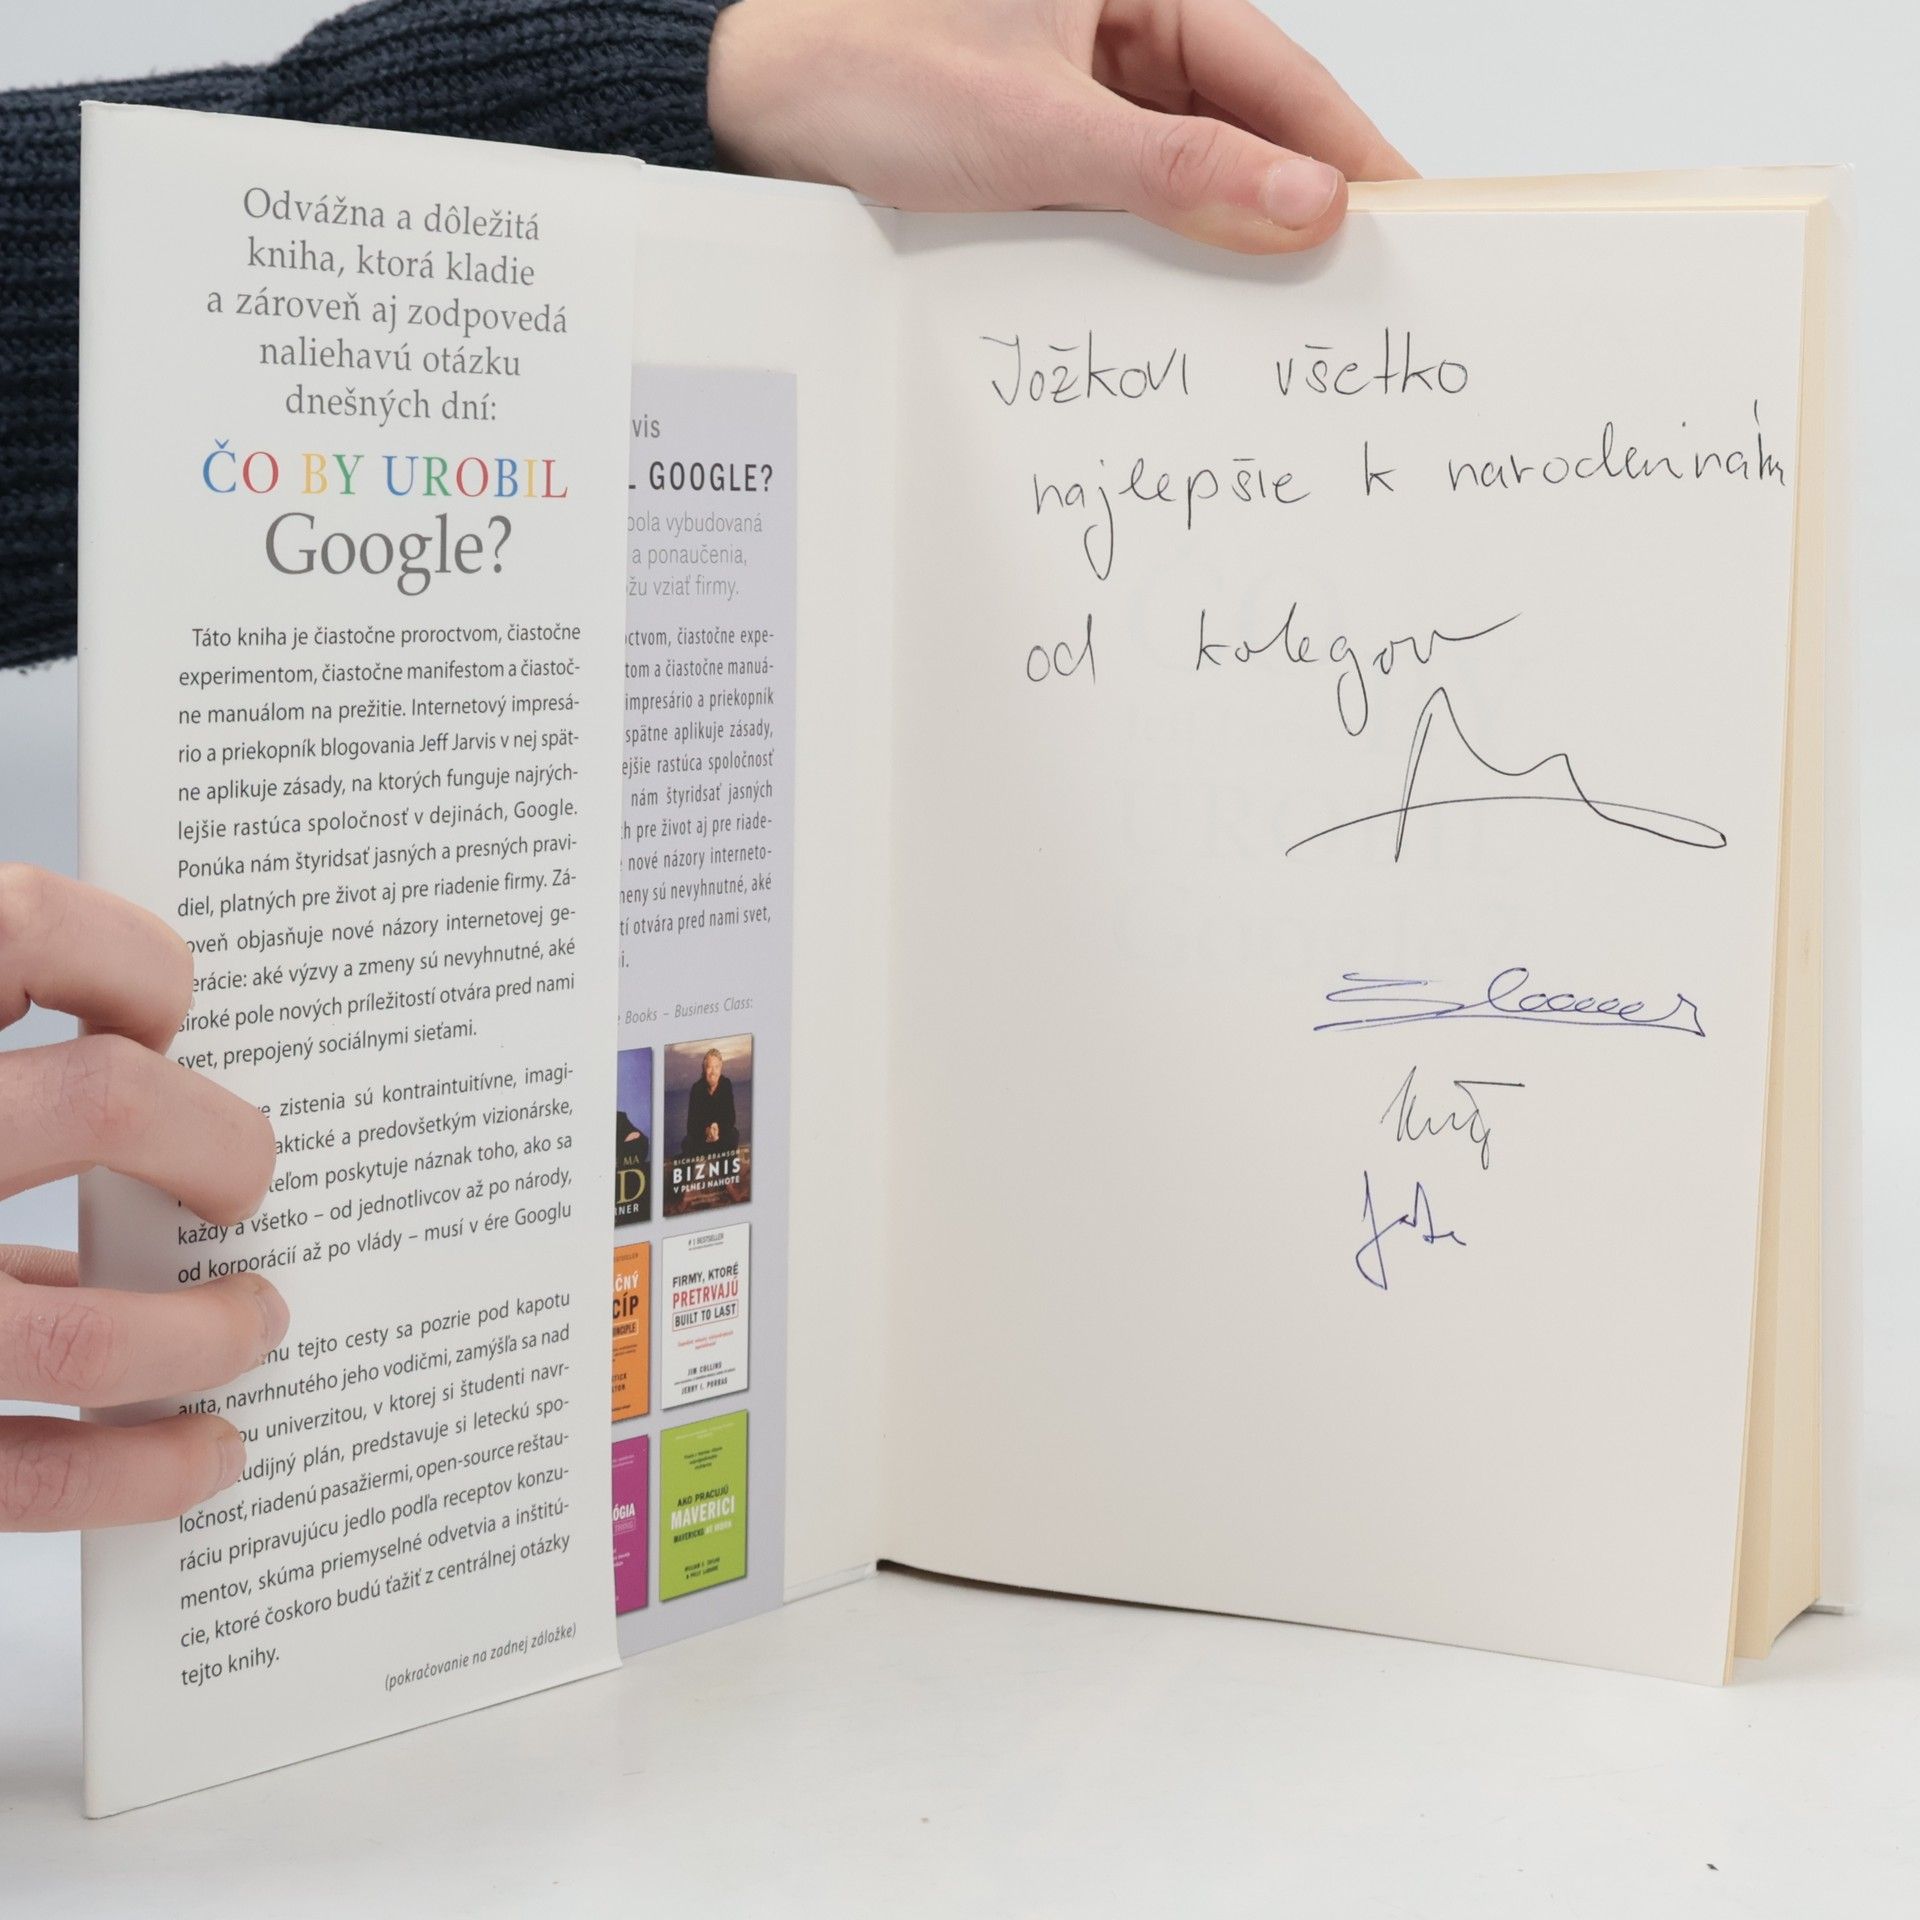 Odvážna a dôležitá
kniha, ktorá kladie
a zároveň aj zodpovedá
naliehavú otázku
dnešných dní:
ČO BY UROBIL
Google?
Táto kniha je čiastočne proroctvom, čiastočne
experimentom, čiastočne manifestom a čiastoč-
ne manuálom na prežitie. Internetový impresá-
rio a priekopník blogovania Jeff Jarvis v nej spät-
ne aplikuje zásady, na ktorých funguje najrých-
lejšie rastúca spoločnosť v dejinách, Google.
Ponúka nám štyridsať jasných a presných pravi-
diel, platných pre život aj pre riadenie firmy. Zá-
oveň objasňuje nové názory internetovej ge-
erácie: aké výzvy a zmeny sú nevyhnutné, aké
široké pole nových príležitostí otvára pred nami
svet, prepojený sociálnymi sieťami.
zistenia sú kontraintuitívne, imagi-
aktické a predovšetkým vizionárske,
teľom poskytuje náznak toho, ako sa
každý a všetko – od jednotlivcov až po národy,
od korporácií až po vlády – musí v ére Googlu
tejto cesty sa pozrie pod kapotu
auta, navrhnutého jeho vodičmi, zamýšľa sa nad
ou univerzitou, v ktorej si študenti navr-
udijný plán, predstavuje si leteckú spo-
ločnosť, riadenú pasažiermi, open-source reštau-
ráciu pripravujúcu jedlo podľa receptov konzu-
mentov, skúma priemyselné odvetvia a inštitú-
cie, ktoré čoskoro budú ťažiť z centrálnej otázky
tejto knihy.
(pokračovanie na zadnej záložke)
vis
L GOOGLE?
bola vybudovaná
a ponaučenia,
žu vziať firmy.
octvom, čiastočne expe-
tom a čiastočne manuá-
impresário a priekopník
spätne aplikuje zásady,
ejšie rastúca spoločnosť
nám štyridsať jasných
h pre život aj pre riade-
nové názory interneto-
meny sú nevyhnutné, aké
tí otvára pred nami svet,
i.
e Books – Business Class:
MA
D
RNER
RICHARD BRANSON
BIZNIS
V PLNEJ NAHOTE
ČNÝ
CÍP
# 1 BESTSELLER
FIRMY, KTORÉ
PRETRVAJÚ
BUILT TO LAST
JIM COLLINS
JERRY I. PORRAS
ÓGIA
AKO PRACUJÚ
MAVERICI
MAVERICKS AT WORK
Jožkovi všetko
najlepšie k narodeninám
od kolegov